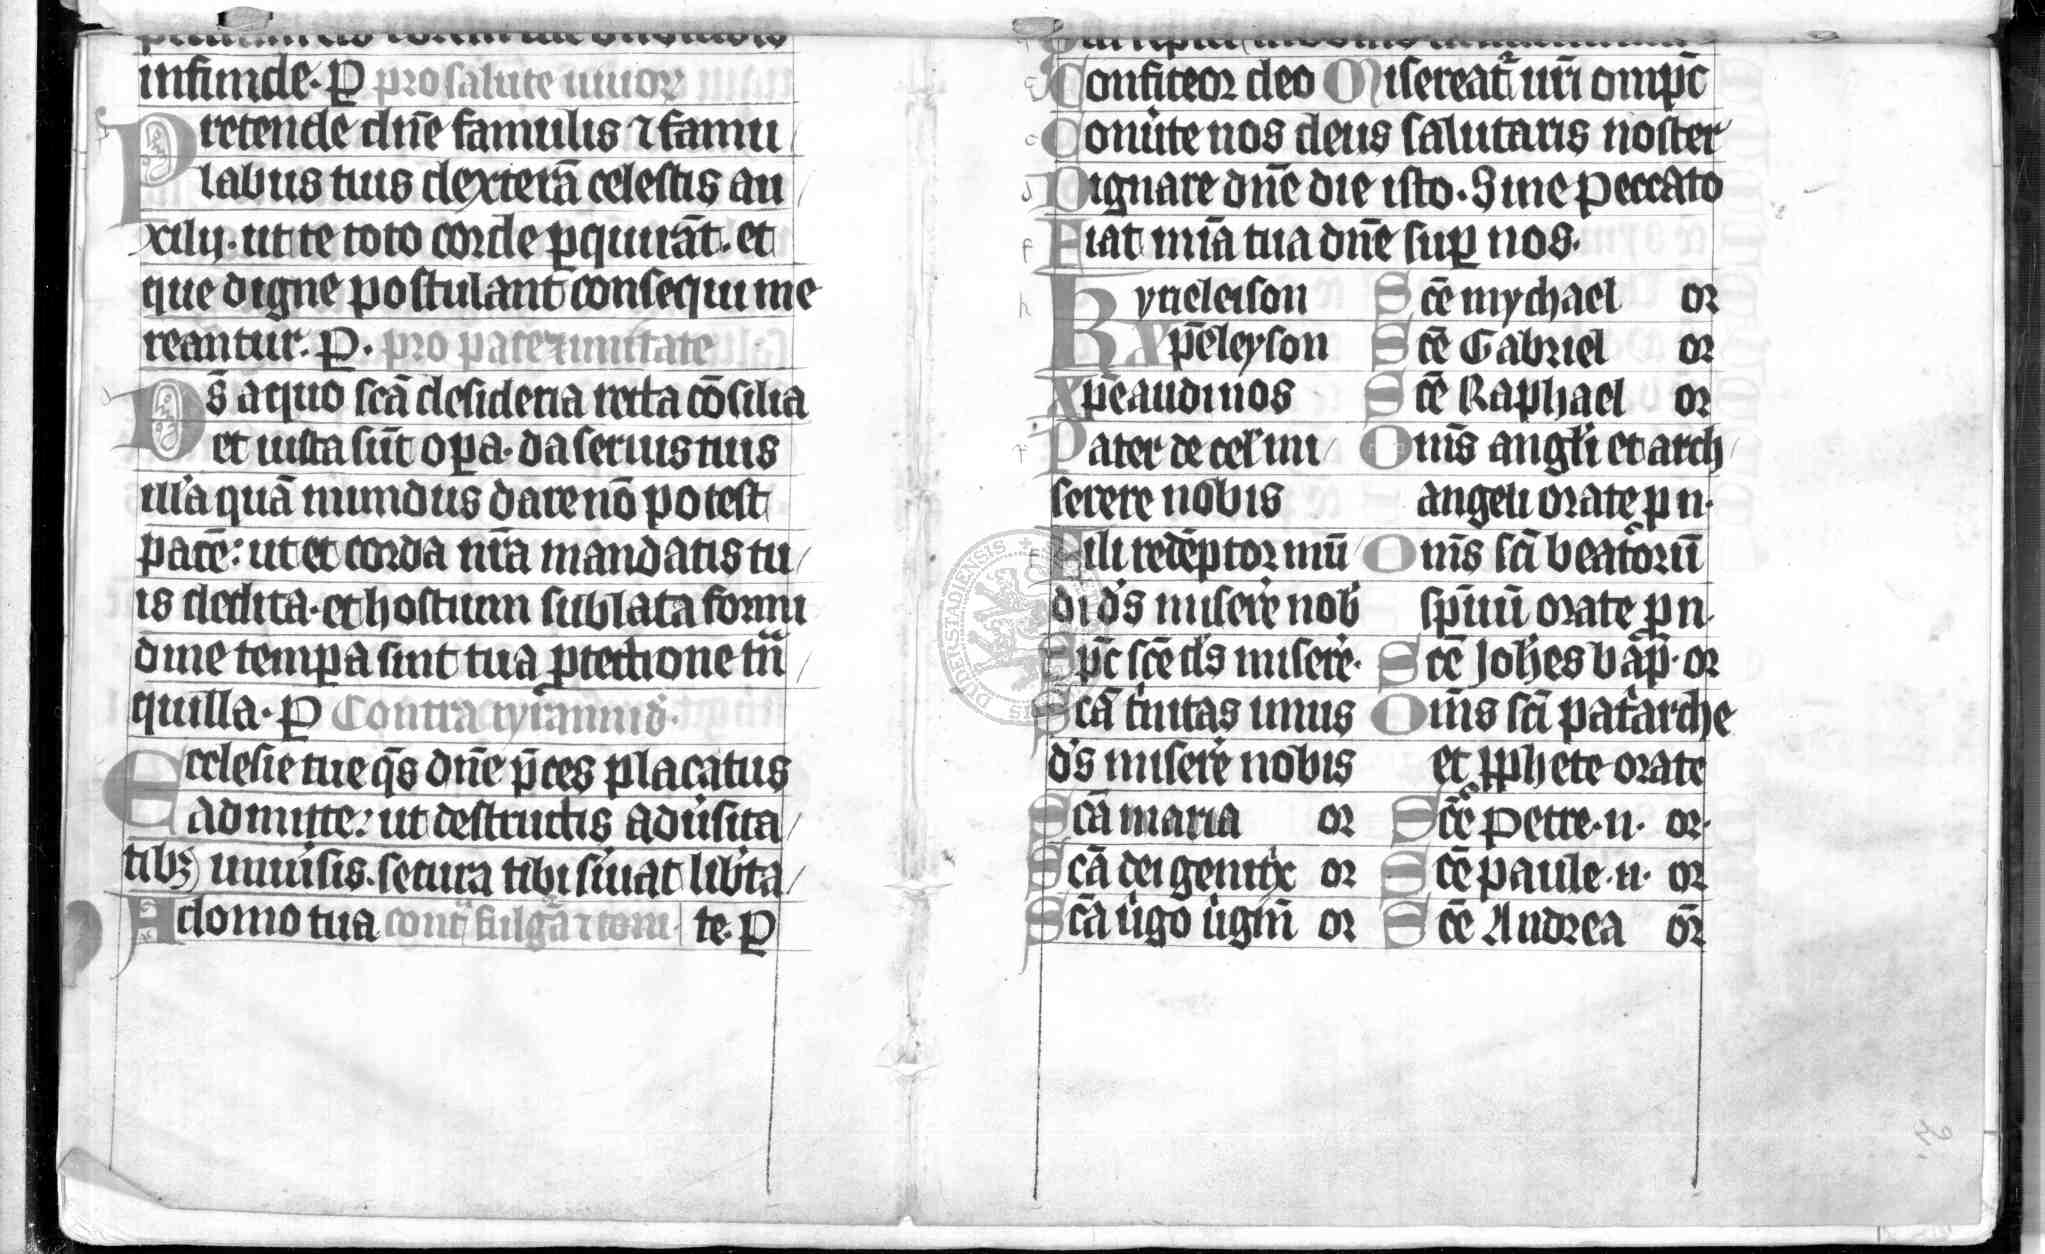 infunde. P pro salute uiuor
Pretende dñe famulis ⁊ famu
labus tuis dexterā celestis au
xilij. ut te toto corde ꝑquirāt. et
que digne postulant consequi me
reantur. P. pro pace ⁊ unitate
Ds̄ a quo scā desideria recta cōsilia
et iusta sūt oꝑa. da seruis tuis
illa quā mundus dare nō potest
pacē: ut et corda nr̄a mandatis tu
is dedita. et hostium sublata formi
dine tempora sint tua ꝓtectione trā
quilla. P Contra tyrannid
Ecclesie tue q̄s dñe p̄ces placatus
admitte: ut destructis aduersita
tibꝫ uniuersis. secura tibi seruiat liberta
A domo tua contra fulgura ⁊ toni te. P
Confiteor deo Misereatr uri omp̄c
Conuerte nos deus salutaris noster
Dignare dñe die isto. Sine peccato
Fiat mīa tua dñe suꝑ nos.
Kyrieleison
Xp̄eleyson
Xp̄e audi nos
Pater de cel mi
serere nobis
Fili redēptor mū
di ds̄ misere nob
Sp̄c scē ds̄ misere.
Scā trinitas unus
ds̄ miserere nobis
Scā maria or
Scā dei genitrix or
Scā uirgo uirgīn or
Scē mychael or
Scē Gabriel or
Scē Raphael or
Om̄s angeli et arch
angeli orate p n.
Om̄s sci beatorū
sp̄irituū orate p n.
Scē Johes bap̄. or
Om̄s sci patriarche
et ꝓphete orate
Scē Petre. ii. or.
Scē paule. ii. or
Scē Andrea or